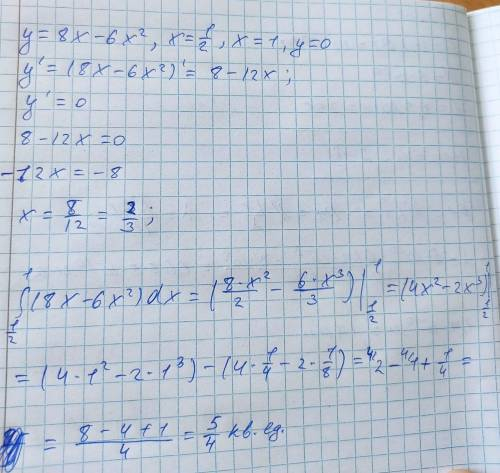 y = 8x - 6x², x = 1/2, x = 1, y = 0
y' = (8x - 6x²)' = 8 - 12x;
y' = 0
8 - 12x = 0
-12x = -8
x = 8/12 = 2/3;
∫₁/₂¹ (8x - 6x²) dx = (8·x²/2 - 6·x³/3) |₁/₂¹ = (4x² - 2x³)|₁/₂¹
= (4·1² - 2·1³) - (4·1/4 - 2·1/8) = 2 - 1 + 1/4 =
= (8 - 4 + 1)/4 = 5/4 кв. ед.